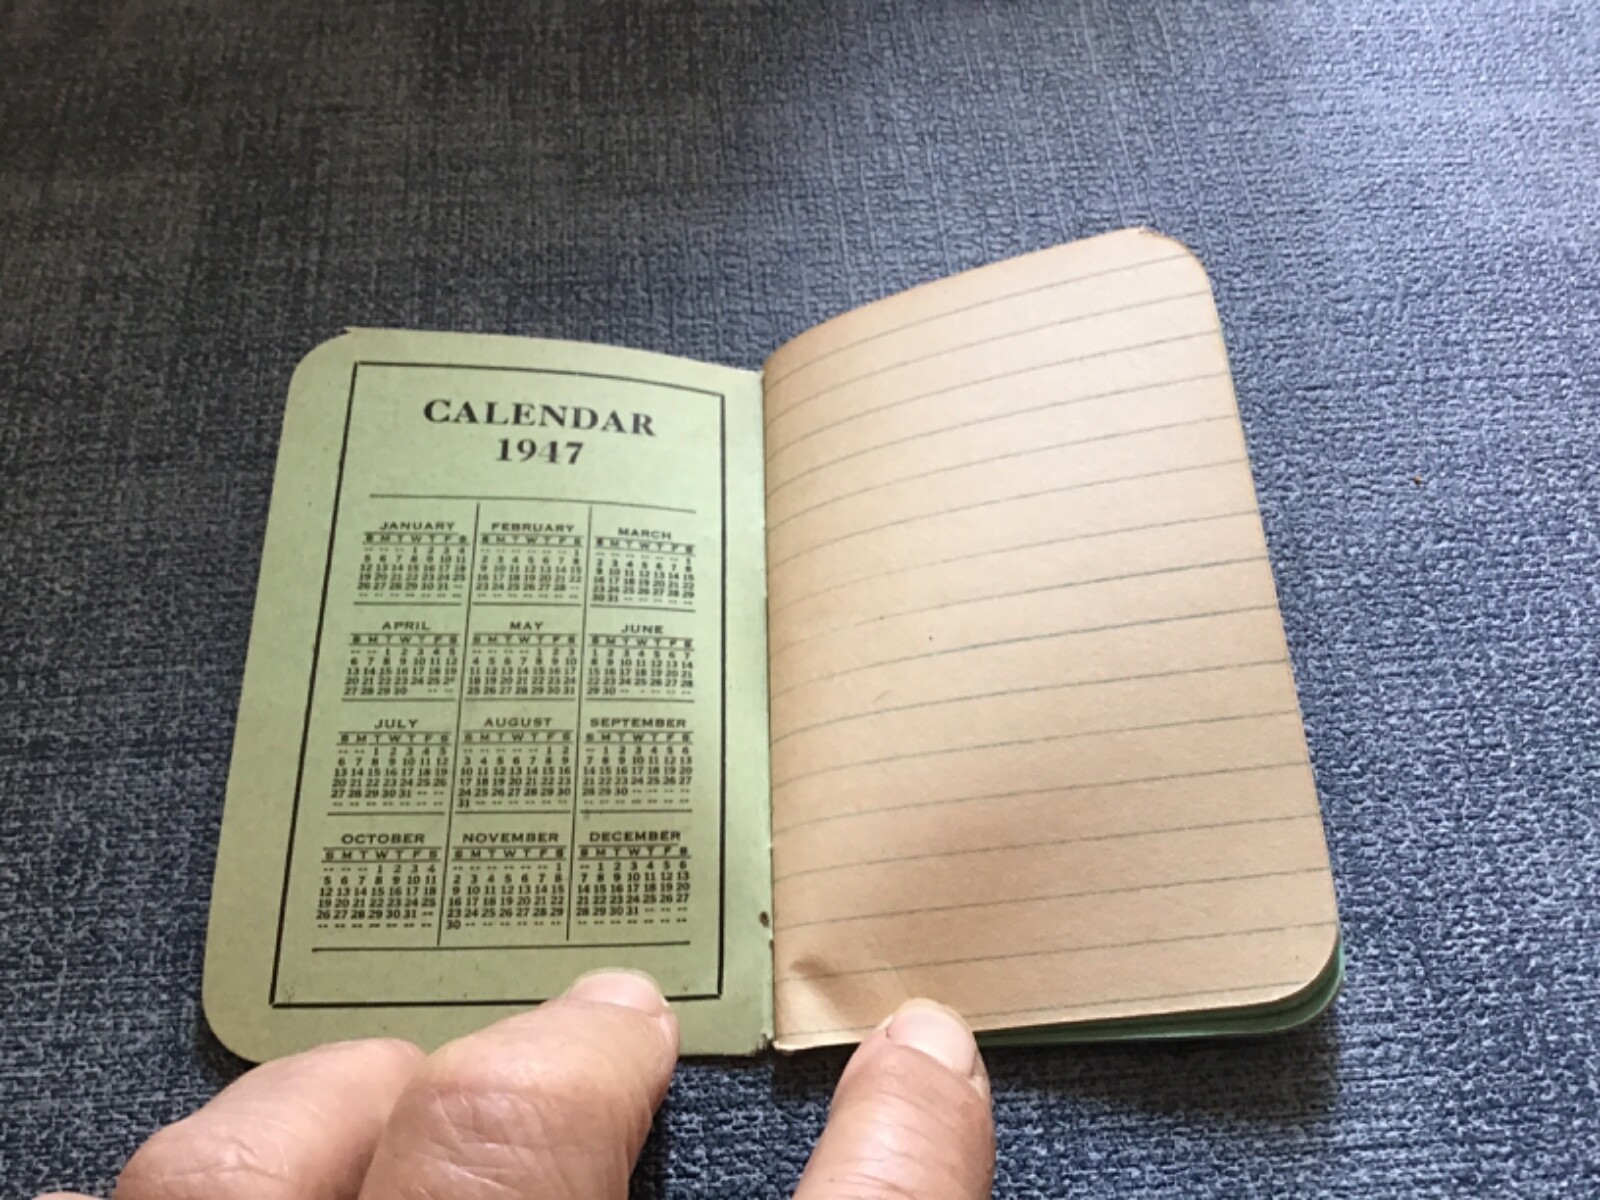 CALENDAR
1947
JANUARY
S M T W T F S
-- -- -- 1 2 3 4
5 6 7 8 9 10 11
12 13 14 15 16 17 18
19 20 21 22 23 24 25
26 27 28 29 30 31 --
-- -- -- -- -- -- --
FEBRUARY
S M T W T F S
-- -- -- -- -- -- 1
2 3 4 5 6 7 8
9 10 11 12 13 14 15
16 17 18 19 20 21 22
23 24 25 26 27 28 --
-- -- -- -- -- -- --
MARCH
S M T W T F S
-- -- -- -- -- -- 1
2 3 4 5 6 7 8
9 10 11 12 13 14 15
16 17 18 19 20 21 22
23 24 25 26 27 28 29
30 31 -- -- -- -- --
APRIL
S M T W T F S
-- -- 1 2 3 4 5
6 7 8 9 10 11 12
13 14 15 16 17 18 19
20 21 22 23 24 25 26
27 28 29 30 -- --
MAY
S M T W T F S
-- -- -- -- 1 2 3
4 5 6 7 8 9 10
11 12 13 14 15 16 17
18 19 20 21 22 23 24
25 26 27 28 29 30 31
JUNE
S M T W T F S
1 2 3 4 5 6 7
8 9 10 11 12 13 14
15 16 17 18 19 20 21
22 23 24 25 26 27 28
29 30 -- -- -- -- --
JULY
S M T W T F S
-- -- 1 2 3 4 5
6 7 8 9 10 11 12
13 14 15 16 17 18 19
20 21 22 23 24 25 26
27 28 29 30 31 -- --
-- -- -- -- -- -- --
AUGUST
S M T W T F S
-- -- -- -- -- 1 2
3 4 5 6 7 8 9
10 11 12 13 14 15 16
17 18 19 20 21 22 23
24 25 26 27 28 29 30
31 -- -- -- -- -- --
SEPTEMBER
S M T W T F S
-- 1 2 3 4 5 6
7 8 9 10 11 12 13
14 15 16 17 18 19 20
21 22 23 24 25 26 27
28 29 30 -- -- -- --
-- -- -- -- -- -- --
OCTOBER
S M T W T F S
-- -- -- 1 2 3 4
5 6 7 8 9 10 11
12 13 14 15 16 17 18
19 20 21 22 23 24 25
26 27 28 29 30 31 --
-- -- -- -- -- -- --
NOVEMBER
S M T W T F S
-- -- -- -- -- -- 1
2 3 4 5 6 7 8
9 10 11 12 13 14 15
16 17 18 19 20 21 22
23 24 25 26 27 28 29
30 -- -- -- -- -- --
DECEMBER
S M T W T F S
-- 1 2 3 4 5 6
7 8 9 10 11 12 13
14 15 16 17 18 19 20
21 22 23 24 25 26 27
28 29 30 31 -- -- --
-- -- -- -- -- -- --